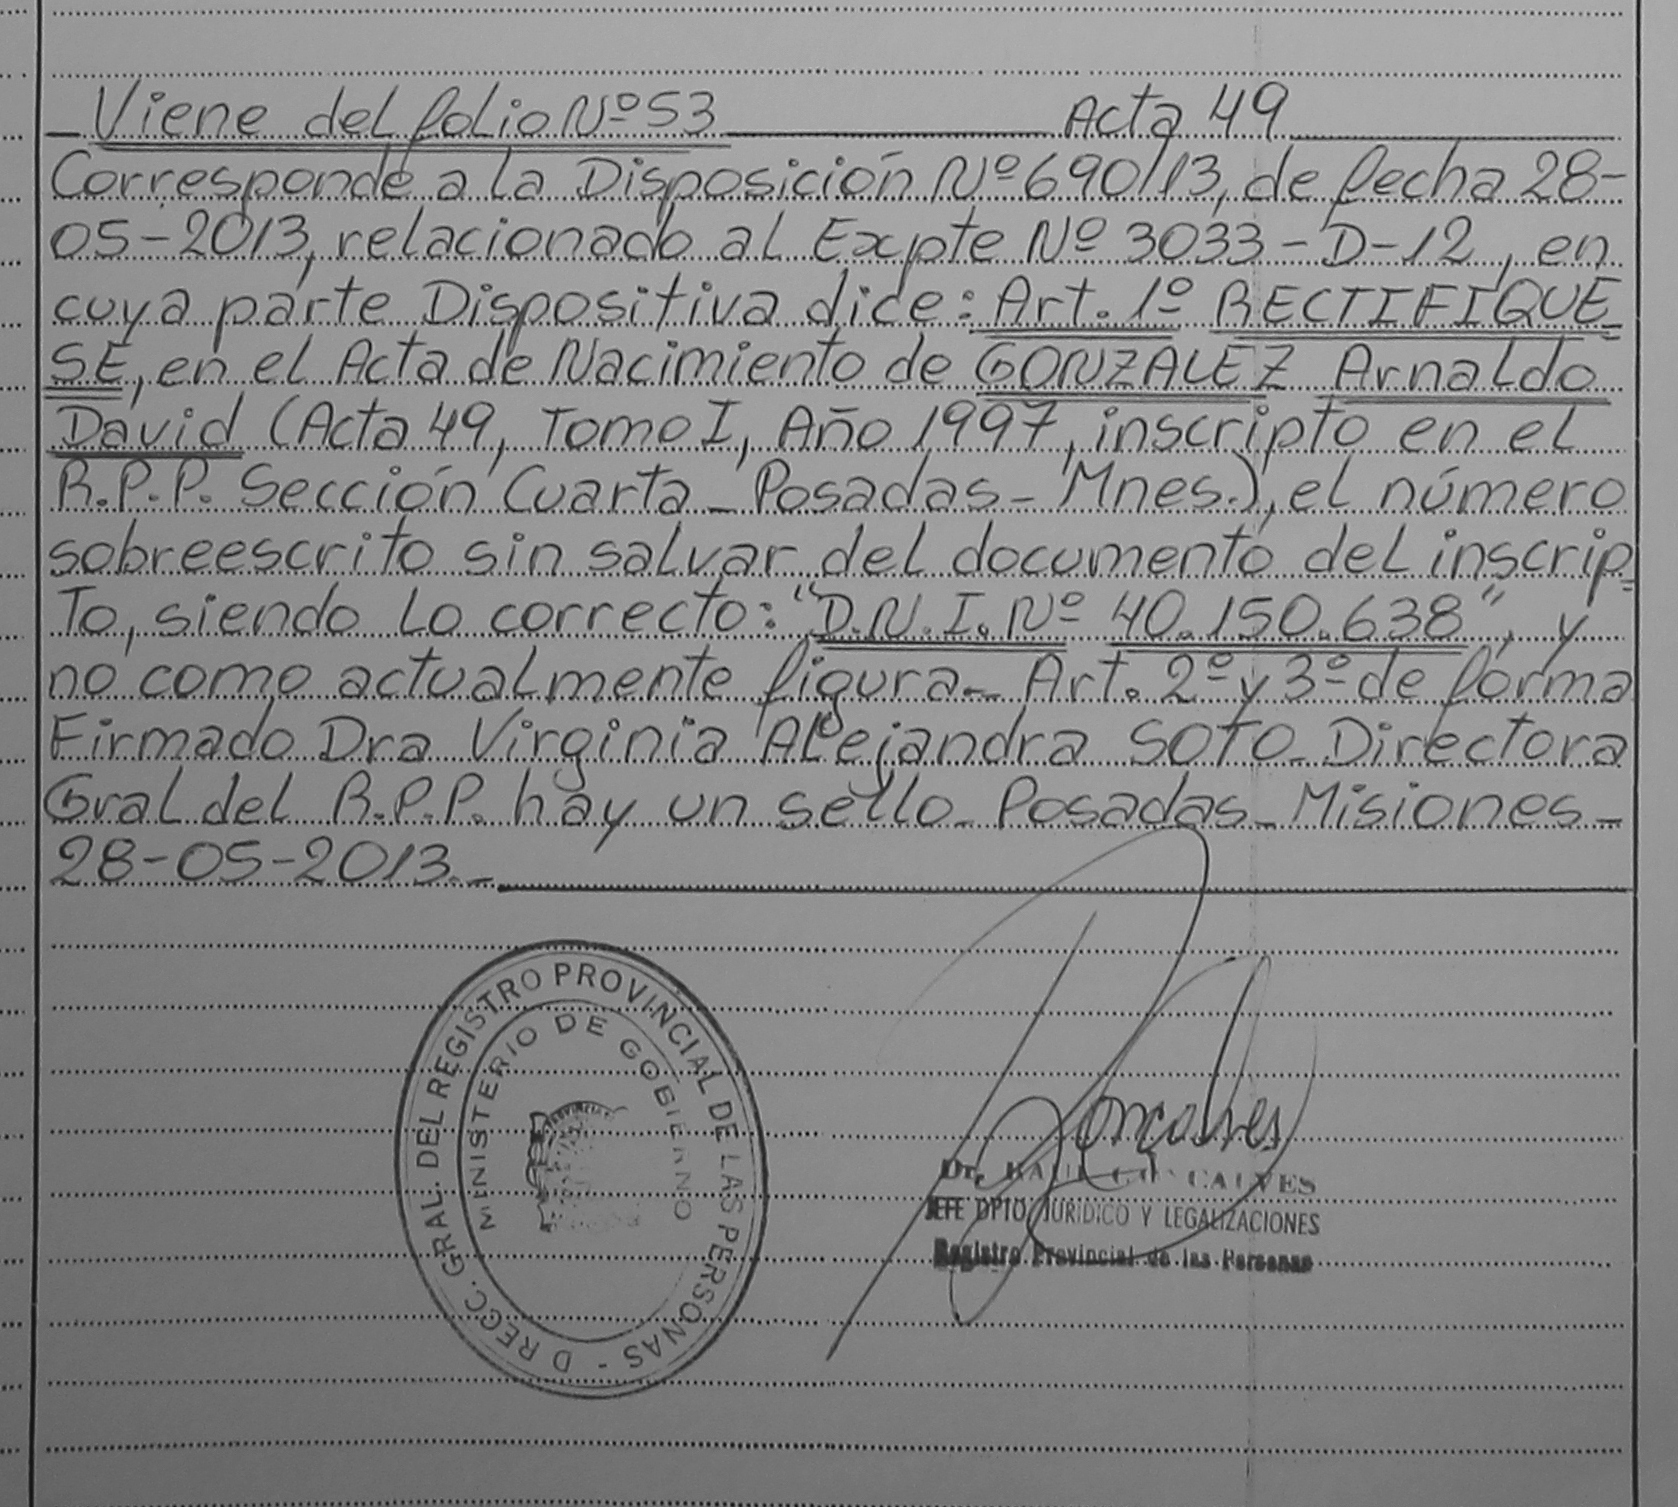 Viene del folio Nº 53 Acta 49
Corresponde a la Disposición Nº 690/13, de fecha 28-
05-2013, relacionado al Expte Nº 3033-D-12, en
cuya parte Dispositiva dice: Art. 1º RECTIFIQUE
SE, en el Acta de Nacimiento de GONZALEZ Arnaldo
David (Acta 49, Tomo I, Año 1997, inscripto en el
R.P.P. Sección Cuarta - Posadas - Mnes.), el número
sobreescrito sin salvar del documento del inscrip-
to, siendo lo correcto: "D.N.I. Nº 40.150.638", y
no como actualmente figura.- Art. 2º y 3º de forma
Firmado Dra Virginia Alejandra SOTO - Directora
Gral del R.P.P. hay un sello - Posadas - Misiones -
28-05-2013.-
DIRECC. GRAL. DEL REGISTRO PROVINCIAL DE LAS PERSONAS -
MINISTERIO DE GOBIERNO
Goncalves
Dr. RAUL GONCALVES
JEFE DPTO. JURIDICO Y LEGALIZACIONES
Registro Provincial de las Personas